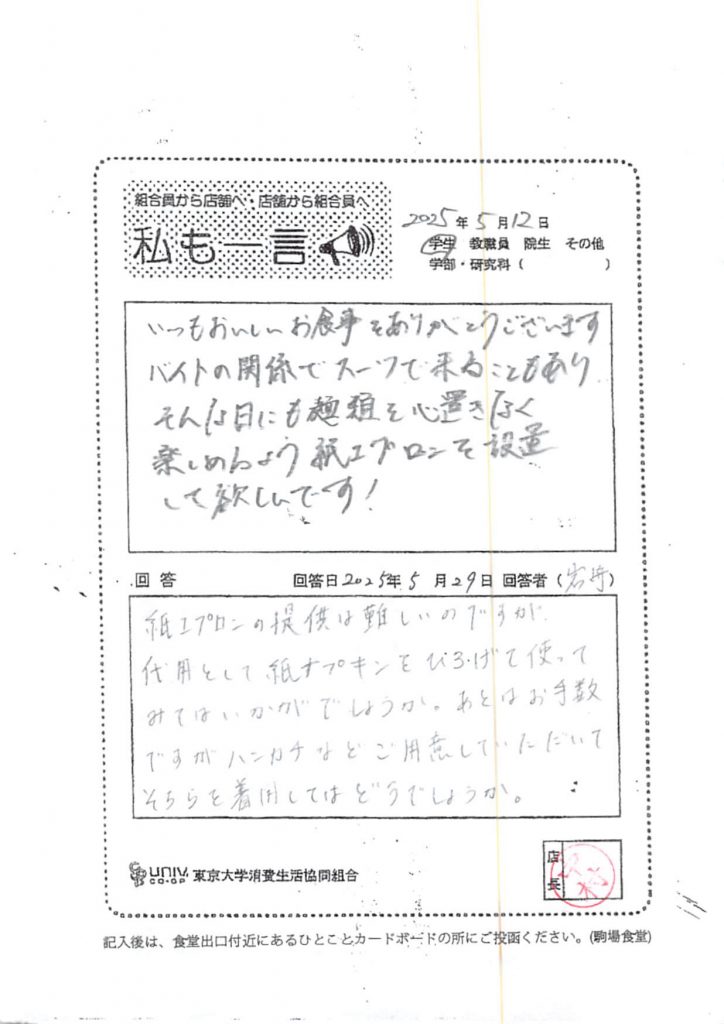 組合員から店舗へ・店舗から組合員へ
私も一言
2025年5月12日
学生 教職員 院生 その他
学部・研究科( )
いつもおいしいお食事をありがとうございます
バイトの関係でスーツで来ることもあり
そんな日にも麺類を心置きなく
楽しめるよう紙エプロンを設置
して欲しいです!
回答 回答日2025年5月29日 回答者(岩井)
紙エプロンの提供は難しいのですが、
代用として紙ナプキンをひろげて使って
みてはいかがでしょうか。あとはお手数
ですがハンカチなどご用意していただいて
そちらを着用してはどうでしょうか。
UNIV. CO-OP 東京大学消費生活協同組合
店長
記入後は、食堂出口付近にあるひとことカードボードの所にご投函ください。(駒場食堂)